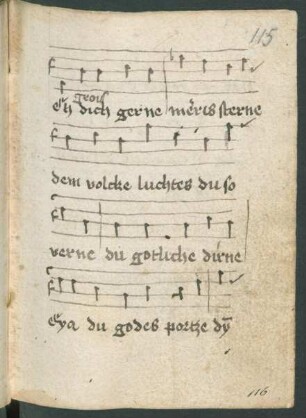 115
grois
Ich dich gerne meris sterne
dem volcke luchtes du so
verne du gotliche dirne
Eya du godes portze dy
116